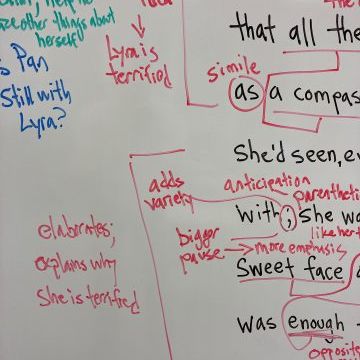 see other things about
herself
Lyra is
terrified
Pan
Still with
Lyra?
that all the
simile
as a compas
She'd seen, ev
adds
variety
anticipation
with; she wa
bigger
pause
more emphasis
elaborates;
explains why
She is terrified
Sweet face
was enough
opposite